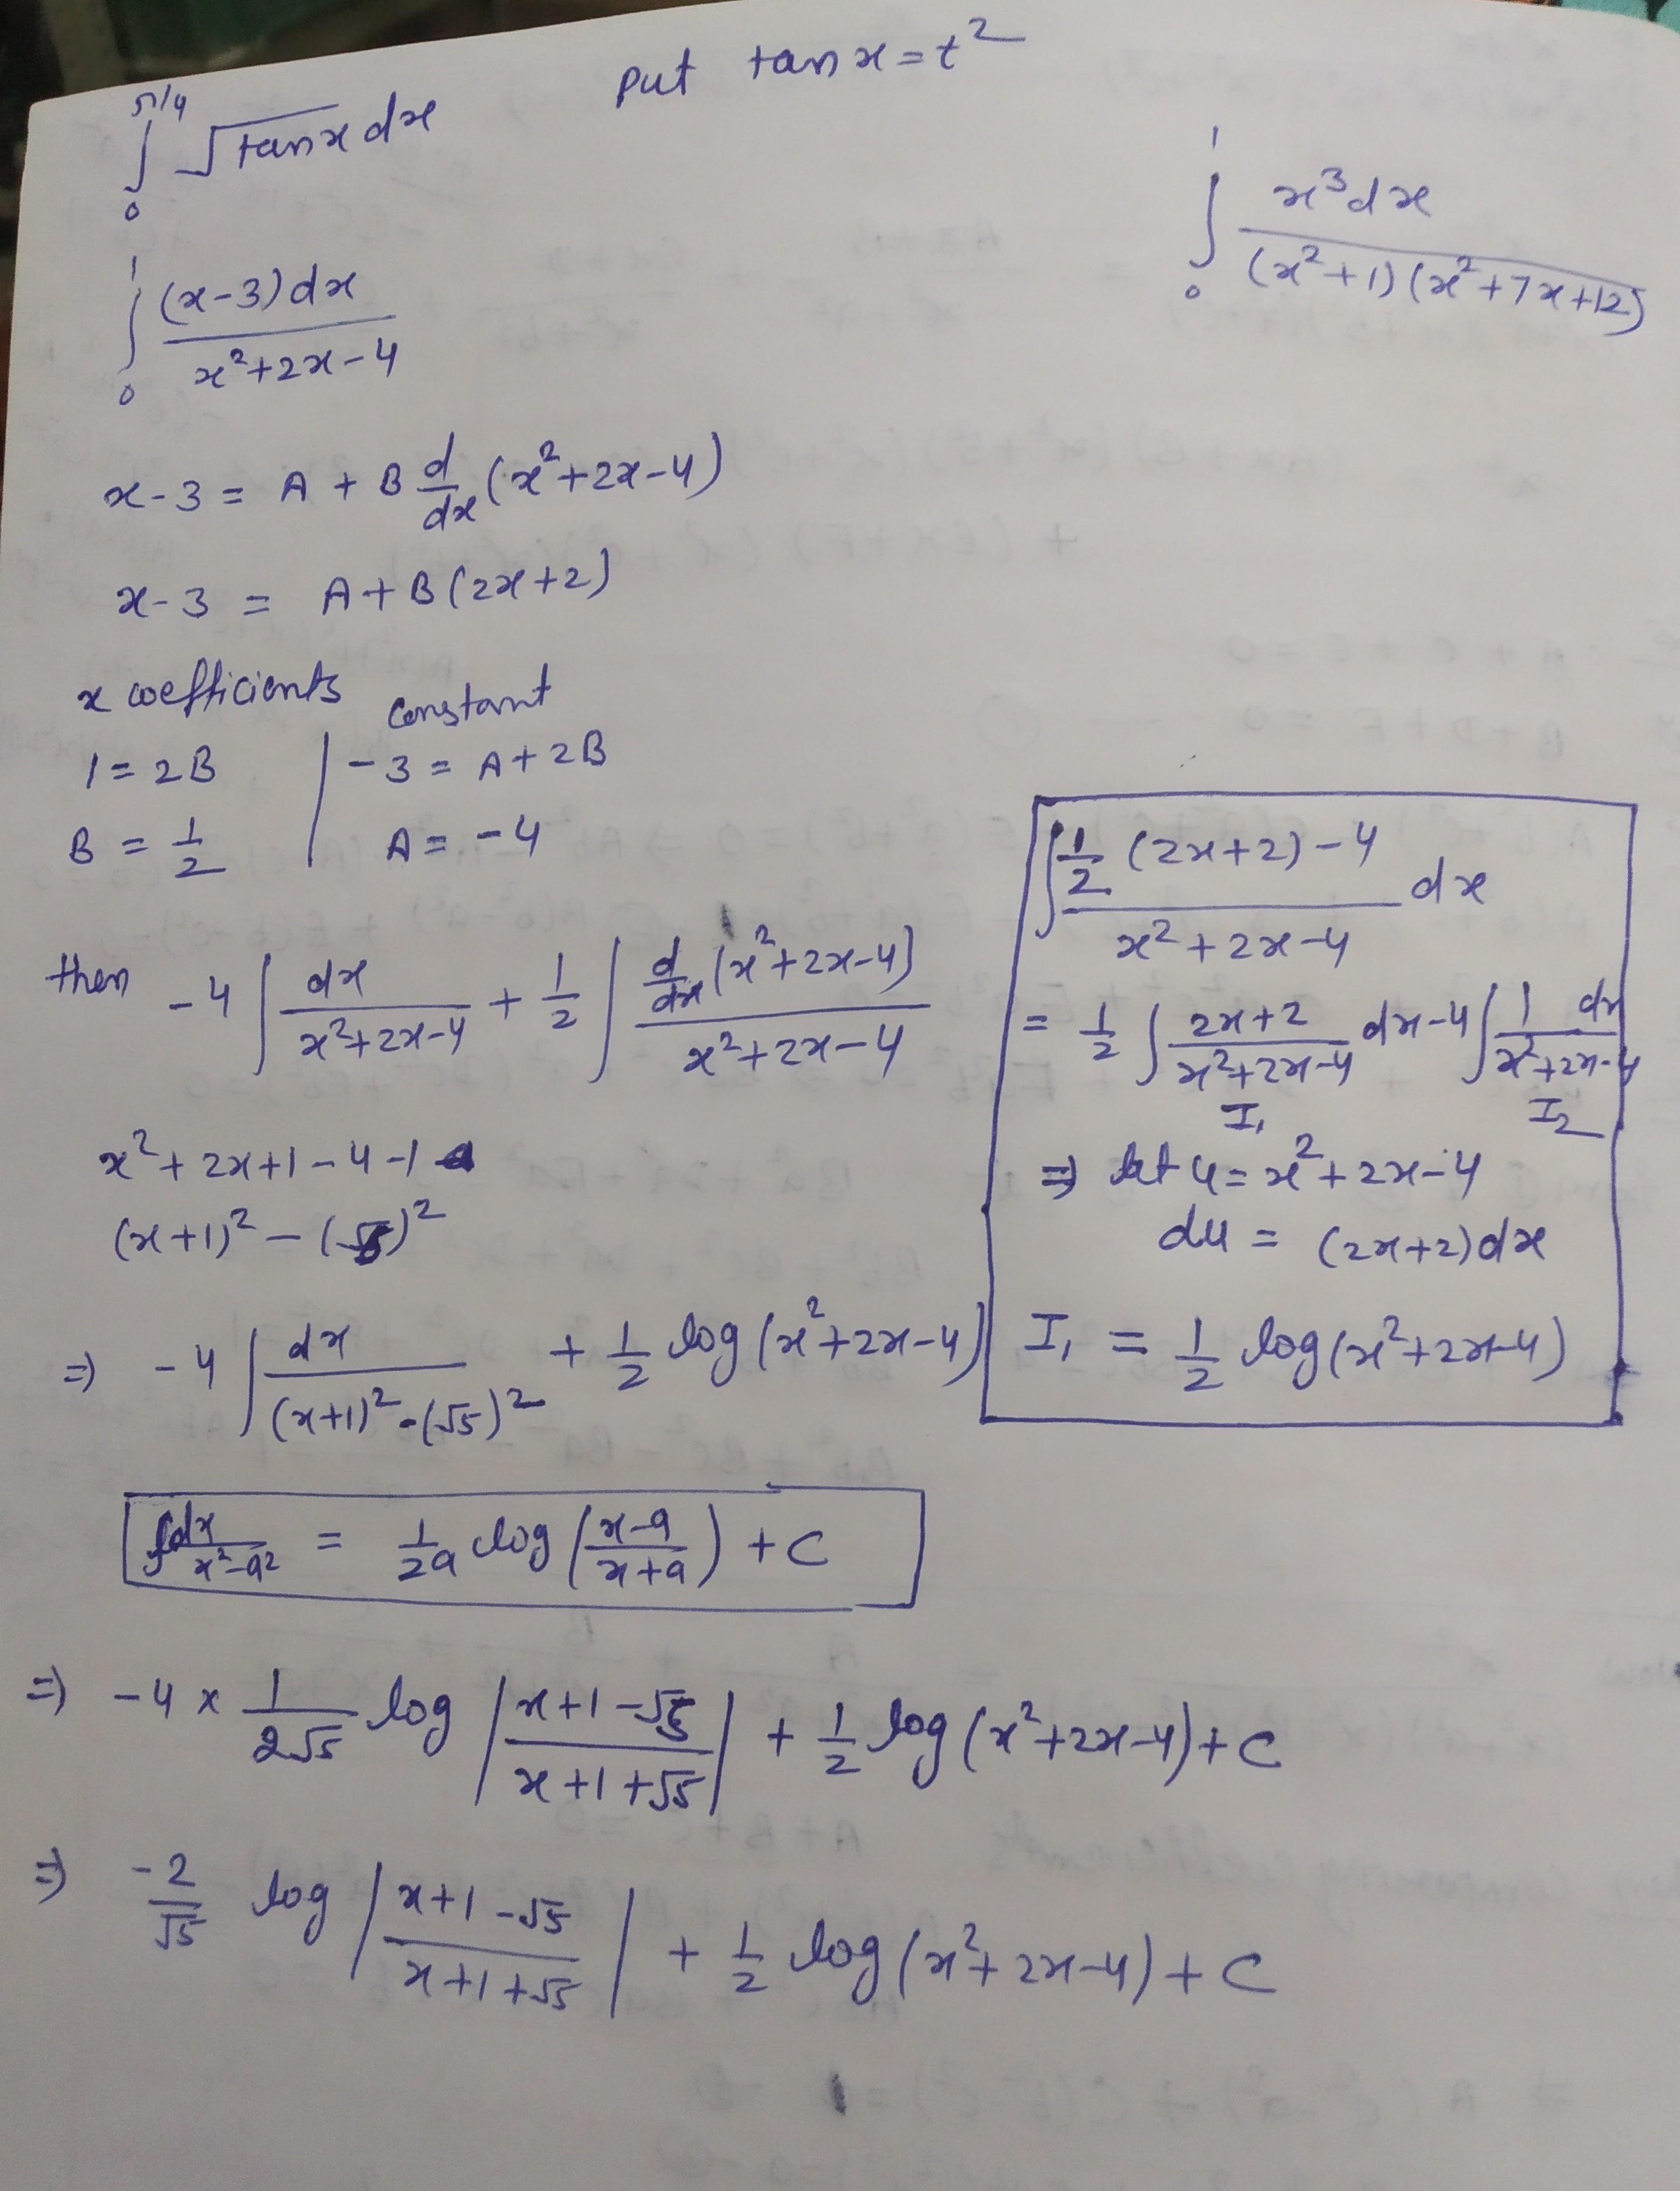 put tan x = t²
∫₀^π/4 √tan x dx
∫₀¹ x³dx / (x²+1)(x²+7x+12)
∫₀¹ (x-3)dx / x²+2x-4
x-3 = A + B d/dx (x²+2x-4)
x-3 = A+B(2x+2)
x coefficients | constant
1 = 2B | -3 = A+2B
B = 1/2 | A = -4
then -4 ∫ dx / x²+2x-4 + 1/2 ∫ d/dx (x²+2x-4) / x²+2x-4
x²+2x+1-4-1
(x+1)² - (√5)²
⇒ -4 ∫ dx / (x+1)²-(√5)² + 1/2 log(x²+2x-4)
∫ 1/2 (2x+2)-4 / x²+2x-4 dx
= 1/2 ∫ 2x+2 / x²+2x-4 dx -4 ∫ 1 dx / x²+2x-4
I₁ I₂
⇒ let u = x²+2x-4
du = (2x+2)dx
I₁ = 1/2 log(x²+2x-4)
∫dx / x²-a² = 1/2a log(x-a / x+a) + C
⇒ -4 × 1/2√5 log |x+1-√5 / x+1+√5| + 1/2 log(x²+2x-4)+C
⇒ -2/√5 log |x+1-√5 / x+1+√5| + 1/2 log(x²+2x-4)+C